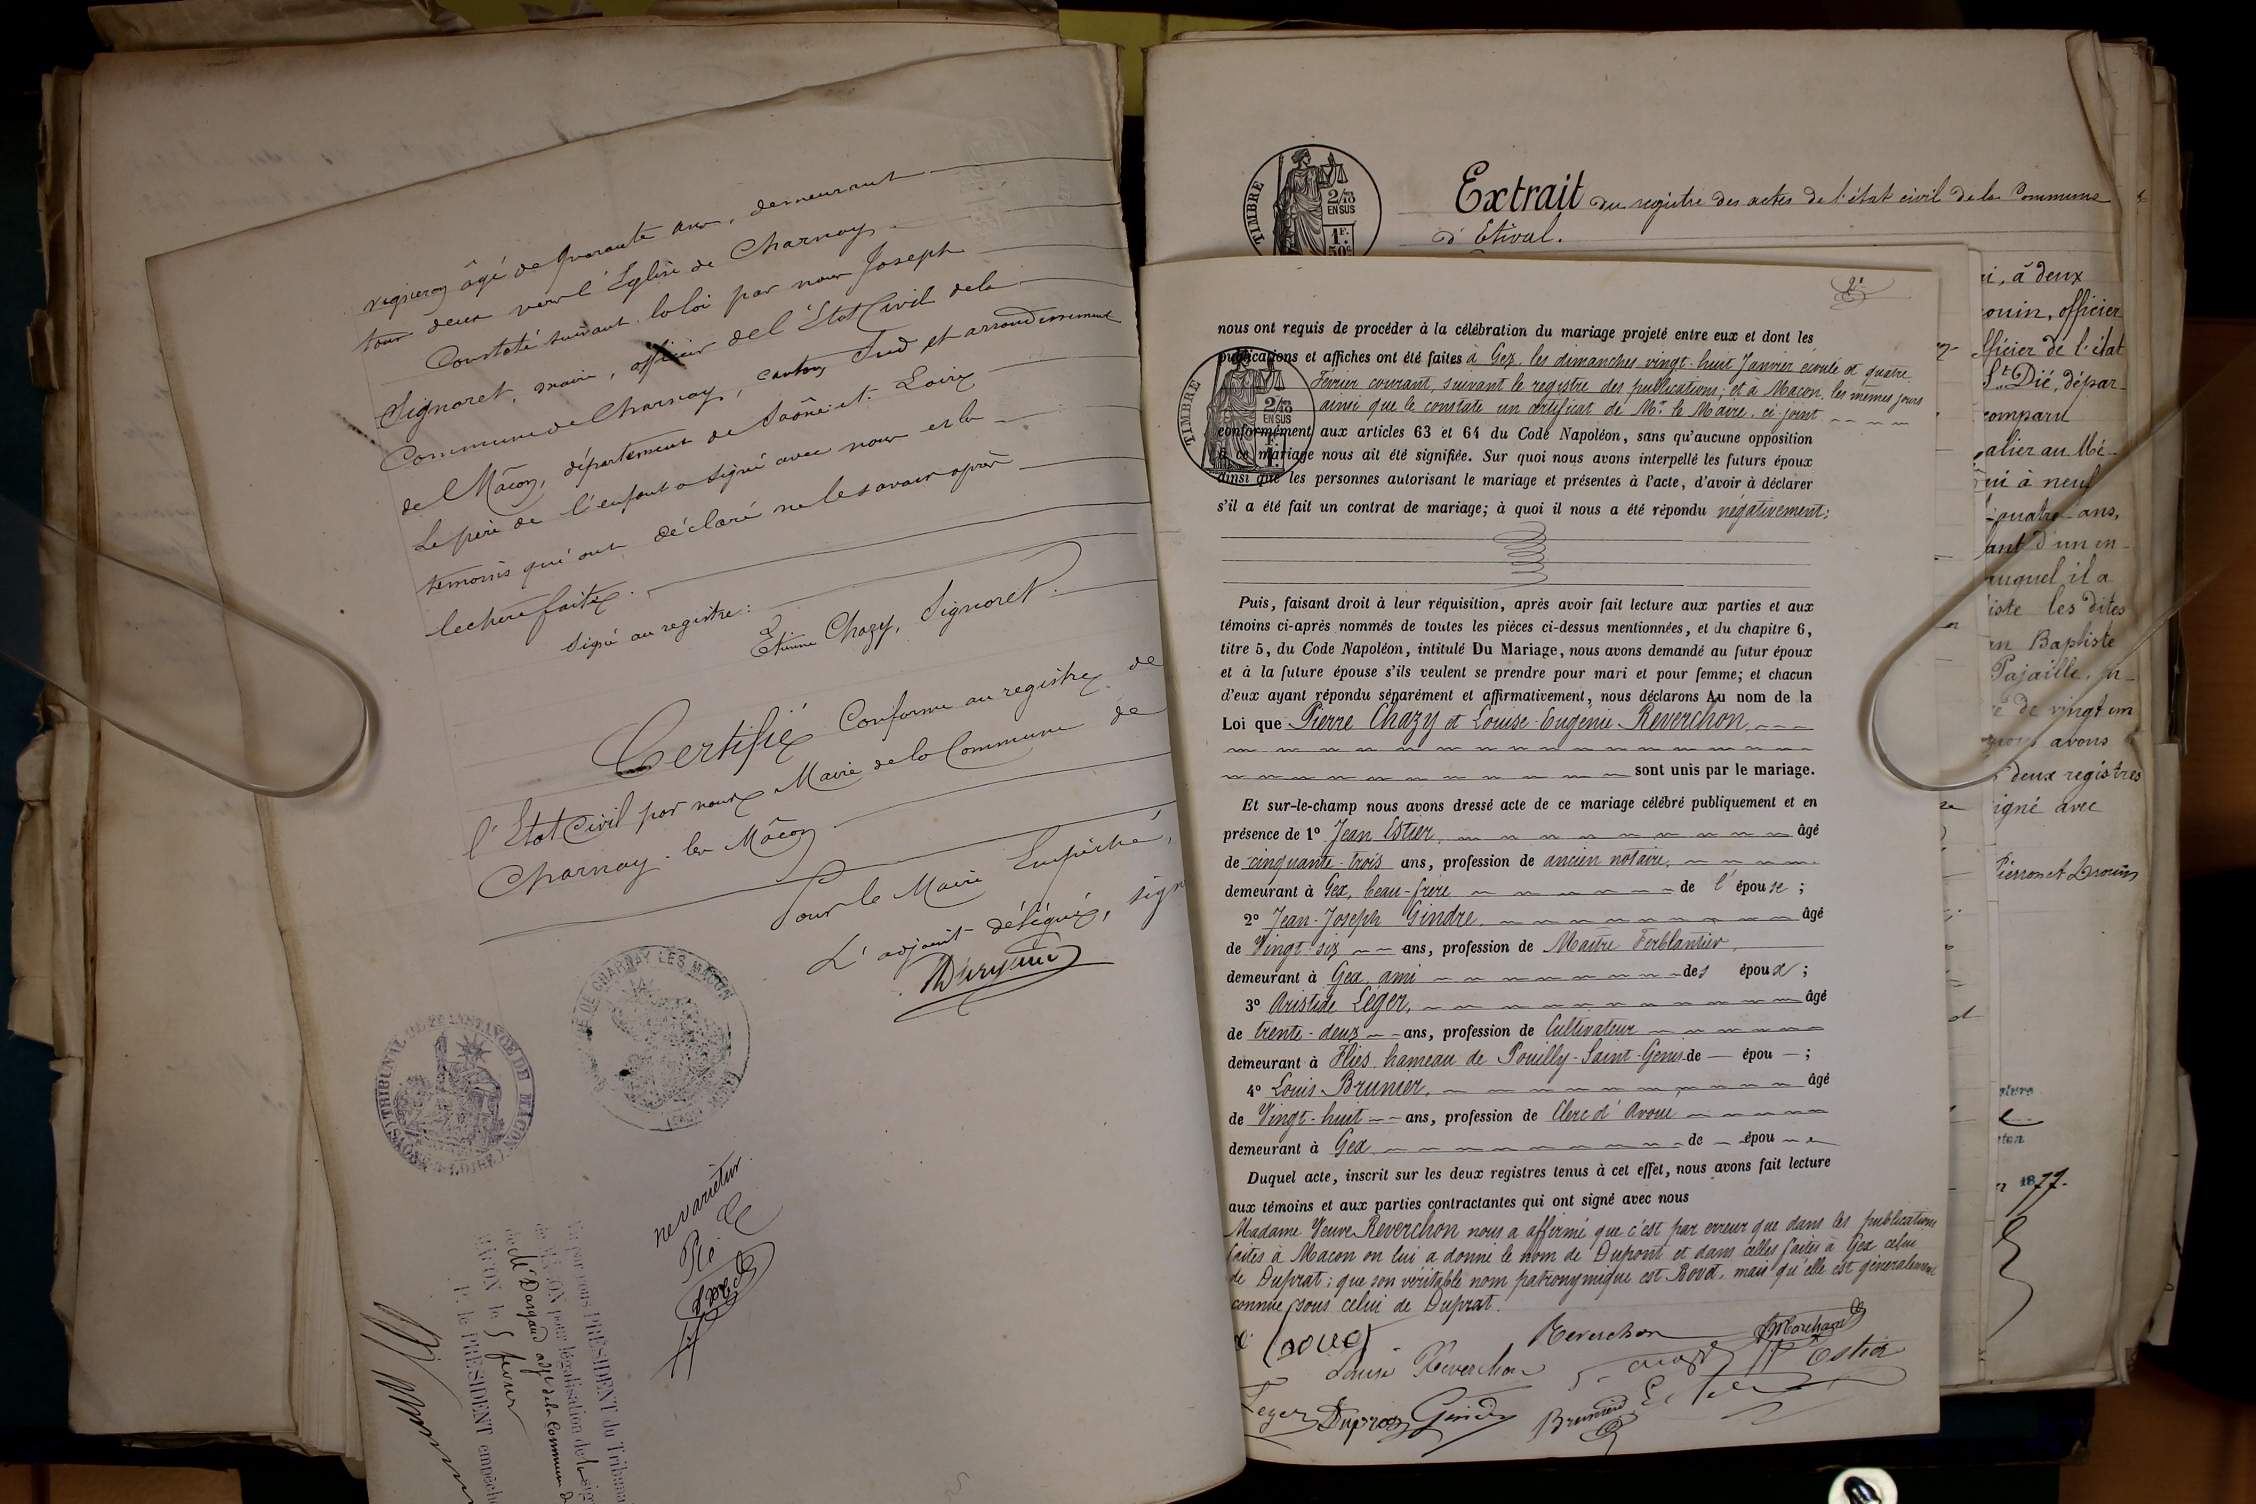 vigneron âgé de quarante ans, demeurant
tous deux vers l'Église de Charnay.
Constaté suivant la loi par nous Joseph
Signoret, maire, officier de l'État Civil de la
Commune de Charnay, canton Sud et arrondissement
de Mâcon, département de Saône-et-Loire
Le père de l'enfant a signé avec nous et les
témoins qui ont déclaré ne le savoir après
lecture faite.
Signé au registre:
Etienne Chazy, Signoret.
Certifié Conforme au registre de
l'Etat Civil par nous Maire de la Commune de
Charnay-les-Mâcon
Pour le Maire Empêché,
L'adjoint délégué, sign
DE CHARNAY LES MACON
TRIBUNAL DE 1ÈRE INSTANCE DE MACON
(SAÔNE & LOIRE)
ne varietur
Vu par nous PRESIDENT du Tribunal
de MACON pour légalisation de la sig
de M. Dargaud adjt de la Commune d
MACON le 5 février
P. le PRESIDENT empêché
TIMBRE
2/10
EN SUS
1F.
50c
Extrait du registre des actes de l'état civil de la Commune
d'Etival.
2e
nous ont requis de procéder à la célébration du mariage projeté entre eux et dont les
publications et affiches ont été faites à Gex, les dimanches vingt-huit Janvier écoulé et quatre
Février courant, suivant le registre des publications; et à Macon, les mêmes jours
ainsi que le constate un certificat de Mr. le Maire, ci-joint
TIMBRE
2/10
EN SUS
conformément aux articles 63 et 64 du Code Napoléon, sans qu'aucune opposition
à ce mariage nous ait été signifiée. Sur quoi nous avons interpellé les futurs époux
ainsi que les personnes autorisant le mariage et présentes à l'acte, d'avoir à déclarer
s'il a été fait un contrat de mariage; à quoi il nous a été répondu négativement;
Puis, faisant droit à leur réquisition, après avoir fait lecture aux parties et aux
témoins ci-après nommés de toutes les pièces ci-dessus mentionnées, et du chapitre 6,
titre 5, du Code Napoléon, intitulé Du Mariage, nous avons demandé au futur époux
et à la future épouse s'ils veulent se prendre pour mari et pour femme; et chacun
d'eux ayant répondu séparément et affirmativement, nous déclarons Au nom de la
Loi que Pierre Chazy et Louise-Eugenie Reverchon
sont unis par le mariage.
Et sur-le-champ nous avons dressé acte de ce mariage célébré publiquement et en
présence de 1º Jean Estier, âgé
de cinquante-trois ans, profession de ancien notaire,
demeurant à Gex, beau-frère de l'épouse;
2º Jean-Joseph Gindre, âgé
de Vingt-six ans, profession de Maître Ferblantier,
demeurant à Gex, ami des époux;
3º Aristide Léger, âgé
de trente-deux ans, profession de Cultivateur
demeurant à Flies hameau de Pouilly-Saint-Genis de — épou —;
4º Louis Brunier, âgé
de Vingt-huit ans, profession de Clerc d'Avoué
demeurant à Gex de — épou
Duquel acte, inscrit sur les deux registres tenus à cet effet, nous avons fait lecture
aux témoins et aux parties contractantes qui ont signé avec nous
Madame Veuve Reverchon nous a affirmé que c'est par erreur que dans les publications
faites à Macon on lui a donné le nom de Dupont et dans celles faites à Gex celui
de Duprat; que son véritable nom patronymique est Bovet, mais qu'elle est généralement
connue sous celui de Duprat.
Reverchon
Marchand
Louise Reverchon
Estier
Leger Dupraz Gindre
Brunier
i, à deux
ouin, officier
fficier de l'état
St. Dié, dépar-
comparu
alier au Mé-
ui à neuf
quatre ans,
ant d'un en-
auquel il a
iste les dites
an Baptiste
Pajaille, in-
é de vingt un
nous avons
deux registres
igné avec
Pierron et Drouin
1877.